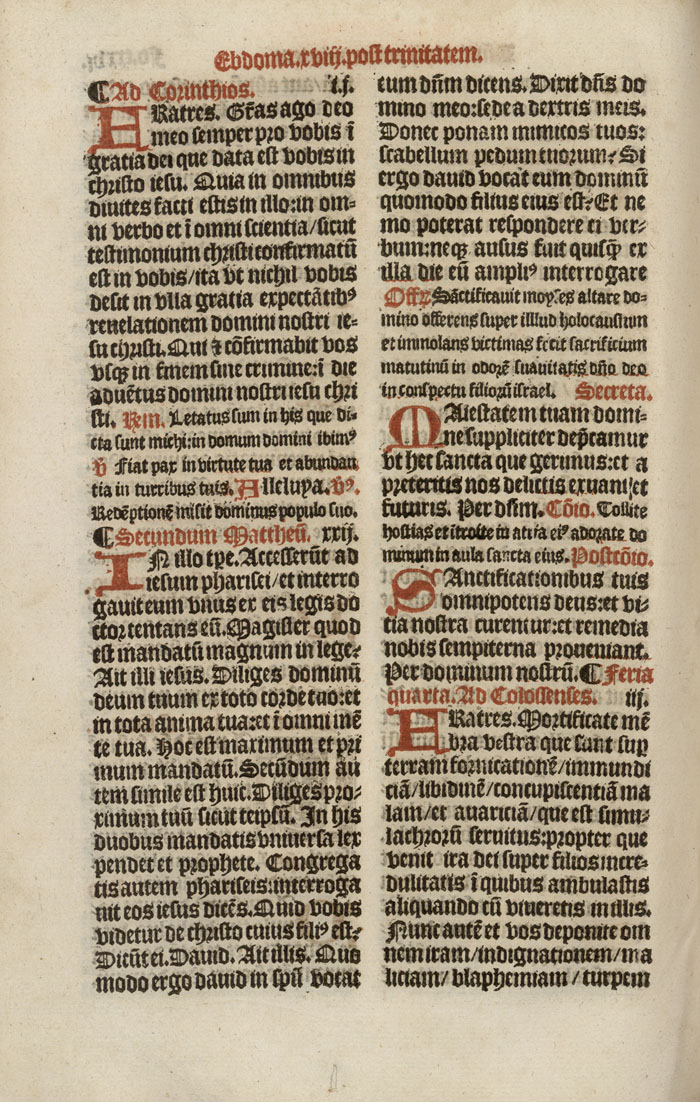 Ebdoma.xviij.post trinitatem.
¶ Ad Corinthios. i.j.
FRatres. Gr̄as ago deo
meo semper pro vobis ī
gratia dei que data est vobis in
christo iesu. Quia in omnibus
diuites facti estis in illo:in om-
ni verbo et ī omni scientia/sicut
testimonium christi confirmatū
est in vobis/ita vt nichil vobis
desit in vlla gratia expectātibꝰ
reuelationem domini nostri ie-
su christi. Qui ⁊ cōfirmabit vos
vsqꝫ in finem sine crimine:ī die
aduētus domini nostri iesu chri
sti. Rem. Letatus sum in his que di-
cta sunt michi:in domum domini ibimꝰ
℣ Fiat pax in virtute tua et abundan
tia in turribus tuis. Alleluya. ℣ꝰ.
Redēptionem misit dominus populo suo.
¶ Secundum Mattheū. xxij.
IN illo tp̄e. Accesserūt ad
iesum pharisei/et interro
gauit eum vnus ex eis legis do
ctor tentans eū. Magister quod
est mandatū magnum in lege⸗
Ait illi iesus. Diliges dominū
deum tuum ex toto corde tuo:et
in tota anima tua:et ī omni mē
te tua. Hoc est maximum et pri
mum mandatū. Secūdum au
tem simile est huic. Diliges pro-
ximum tuū sicut teipsū. In his
duobus mandatis vniuersa lex
pendet et prophete. Congrega
tis autem phariseis:interroga
uit eos iesus dicēs. Quid vobis
videtur de christo cuius filiꝰ est⸗
Dicūt ei. Dauid. Ait illis. Quo
modo ergo dauid in spū vocat
eum dn̄m dicens. Dixit dn̄s do
mino meo:sede a dextris meis.
Donec ponam inimicos tuos:
scabellum pedum tuorum⸗ Si
ergo dauid vocat eum dominū
quomodo filius eius est⸗ Et ne
mo poterat respondere ei ver-
bum:neqꝫ ausus fuit quisqꝫ̄ ex
illa die eū ampliꝰ interrogare
Offz Sāctificauit moyses altare do-
mino offerens super illud holocaustum
et immolans victimas fecit sacrificium
matutinū in odorē suauitatis dn̄o deo
in conspectu filiorū israel. Secreta.
MAiestatem tuam domi-
ne suppliciter dep̄camur
vt hec sancta que gerimus:et a
preteritis nos delictis exuant/et
futuris. Per dn̄m. Cōio. Tollite
hostias et ītroite in atria eiꝰ adorate do
minum in aula sancta eius. Postcōio.
SAnctificationibus tuis
omnipotens deus:et vi-
tia nostra curentur:et remedia
nobis sempiterna proueniant.
Per dominum nostrū. ¶ Feria
quarta. Ad Colossenses. iij.
FRatres. Mortificate mē
bra vestra que sunt sup̄
terram fornicationē/immundi
ciā/libidinē/concupiscentiā ma
lam/et auariciā/que est simu-
lachrorū seruitus:propter que
venit ira dei super filios incre-
dulitatis ī quibus ambulastis
aliquando cū viueretis in illis.
Nunc autē et vos deponite om
nem iram/indignationem/ma
liciam/blaphemiam/turpem